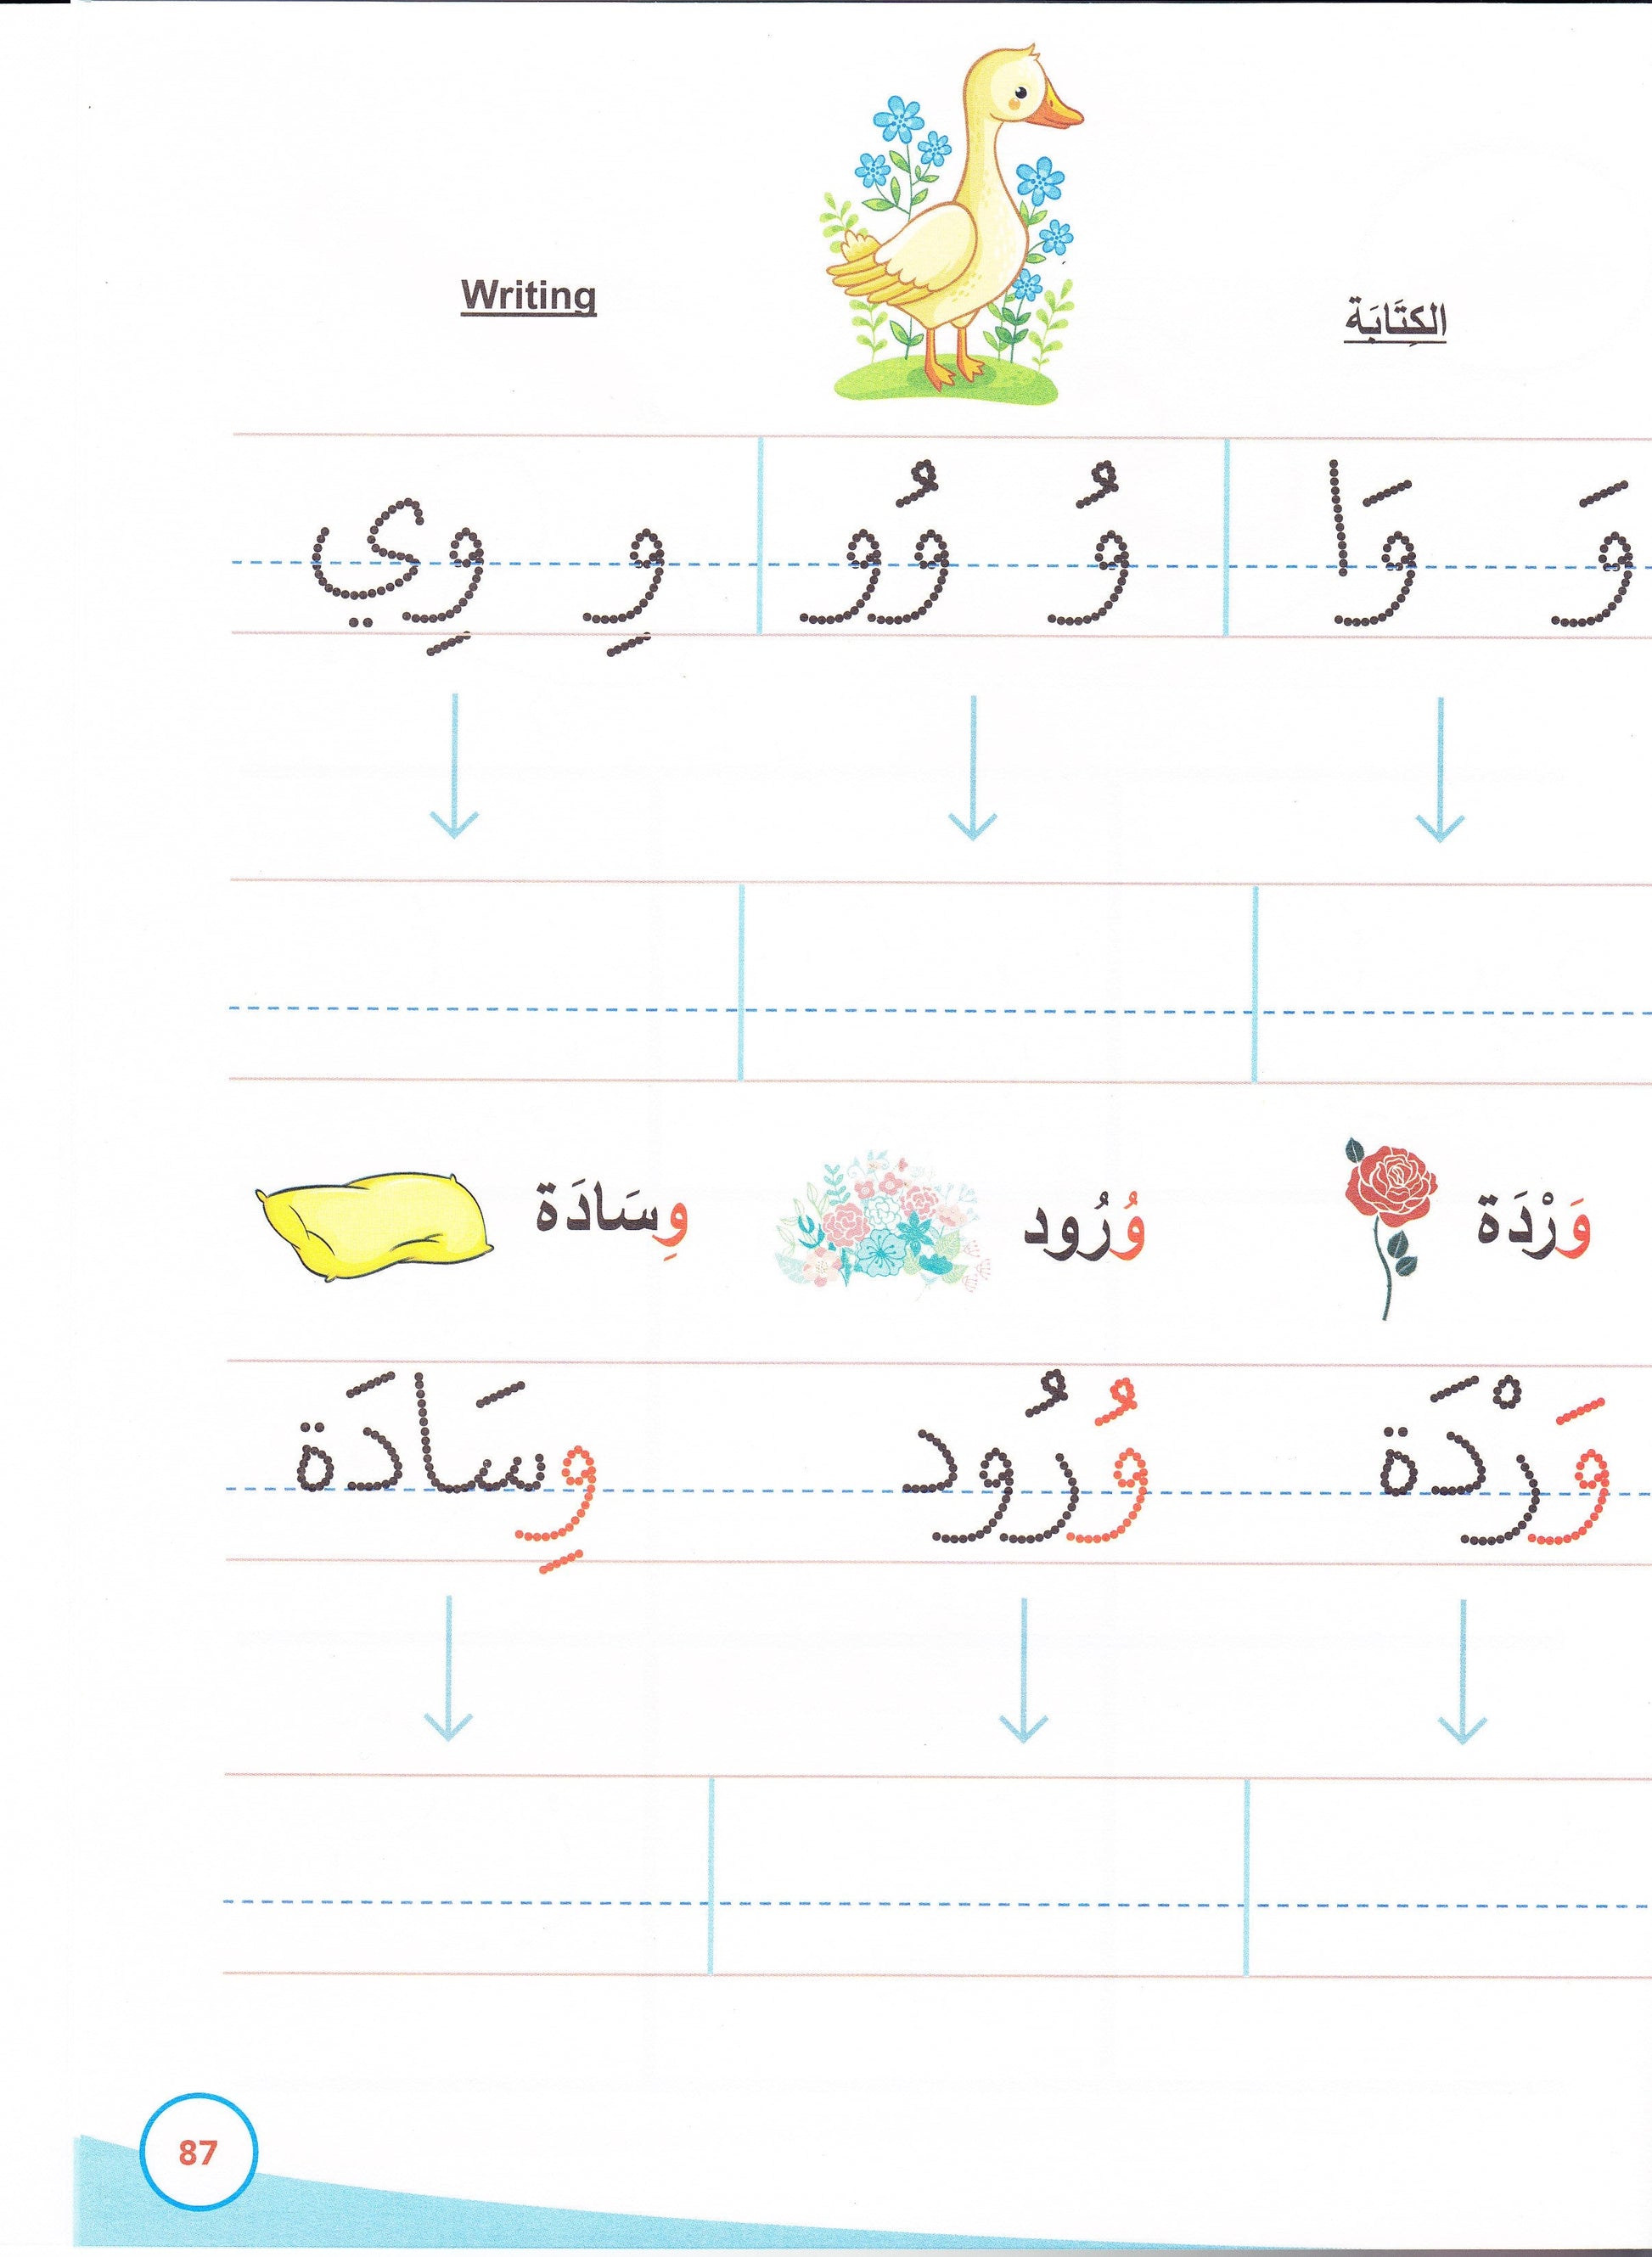 Writing الكِتَابَة
وَ وَا وُ وُو وِ وِي
وَرْدَة وُرُود وِسَادَة
وَرْدَة وُرُود وِسَادَة
87